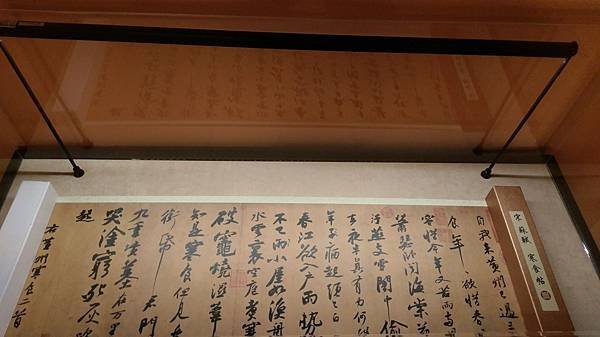 宋 蘇軾 寒食帖
自我來黃州已過三
食年〻欲惜春
容惜今年又苦雨兩
蕭瑟臥聞海棠花
汙燕支雪闇中偷
去夜半真有力何殊
年子病起須已
春江欲入戶雨勢
不已雨小屋如漁舟
水雲裏空庖煮寒
破竈燒濕葦
知是寒食但見烏
銜帋 君門
九重墳墓在万里
哭塗窮死灰吹
起
右黃州寒食二首